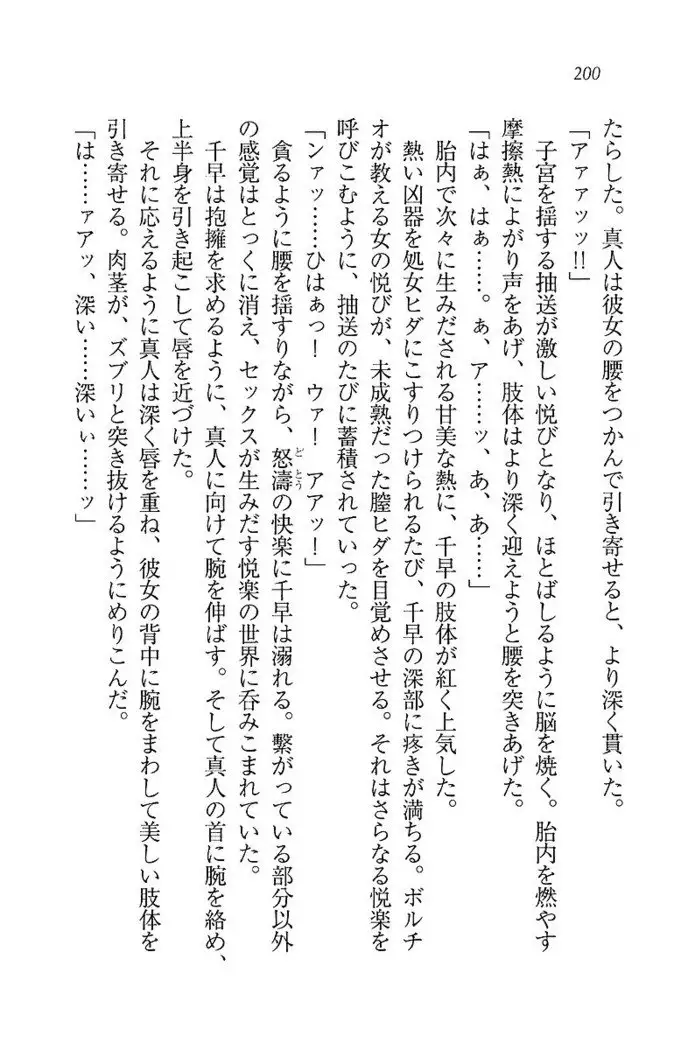 200
たらした。真人は彼女の腰をつかんで引き寄せると、より深く貫いた。
「アァァッッ!!」
子宮を揺する抽送が激しい悦びとなり、ほとばしるように脳を焼く。胎内を燃やす
摩擦熱によがり声をあげ、肢体はより深く迎えようと腰を突きあげた。
「はぁ、はぁ……。ぁ、ア……ッ、あ、あ……」
胎内で次々に生みだされる甘美な熱に、千早の肢体が紅く上気した。
熱い凶器を処女ヒダにこすりつけられるたび、千早の深部に疼きが満ちる。ボルチ
オが教える女の悦びが、未成熟だった膣ヒダを目覚めさせる。それはさらなる悦楽を
呼びこむように、抽送のたびに蓄積されていった。
「ンァッ……ひはぁっ！　ウァ！　アアッ！」
貪るように腰を揺すりながら、怒濤の快楽に千早は溺れる。繋がっている部分以外
の感覚はとっくに消え、セックスが生みだす悦楽の世界に呑みこまれていた。
千早は抱擁を求めるように、真人に向けて腕を伸ばす。そして真人の首に腕を絡め、
上半身を引き起こして唇を近づけた。
それに応えるように真人は深く唇を重ね、彼女の背中に腕をまわして美しい肢体を
引き寄せる。肉茎が、ズブリと突き抜けるようにめりこんだ。
「は……ァアッ、深い……深いぃ……ッ」